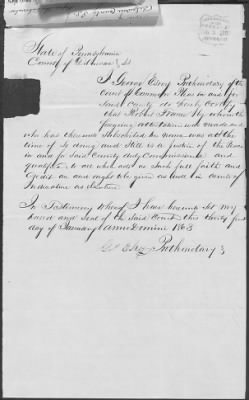 State of Pennsylvania
County of Delaware } SS
I George Esrey Prothonotary of the
Court of Common Pleas in and for
Said County do hereby Certify
that Robert Frame by whom the
foregoing was taken and made and
who has thereunto Subscribed his name was at the
time of So doing and Still is a Justice of the Peace
in and for Said County duly Commissioned and
qualified to all whose acts as Such full faith and
Credit are and ought to be given as well in Courts of
Judicature as elsewhere
In Testimony Whereof I have hereunto Set my
hand and Seal of the Said Court this twenty first
day of January anno Domini 1863
Geo Esrey Prothonotary